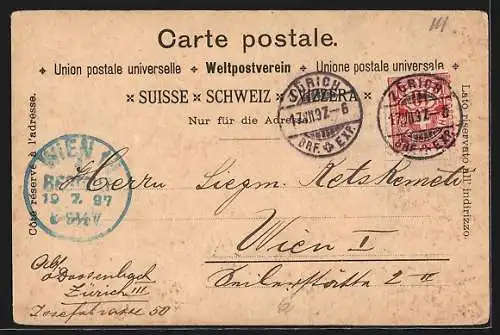 Carte postale.
Union postale universelle Weltpostverein Unione postale universale
SUISSE SCHWEIZ SVIZZERA
Nur für die Adresse
Côté réservé à l'adresse.
Lato riservato all' indirizzo.
ZÜRICH
17.VII.97.-6
BRF. EXP.
ZÜRICH
17.VII.97.-6
BRF. EXP.
WIEN
19 7 97
Herrn Siegm. Ketskemeti
Wien I
Seilerstätte 2
Abs
Dossenbach
Zürich III
Josefstrasse 50